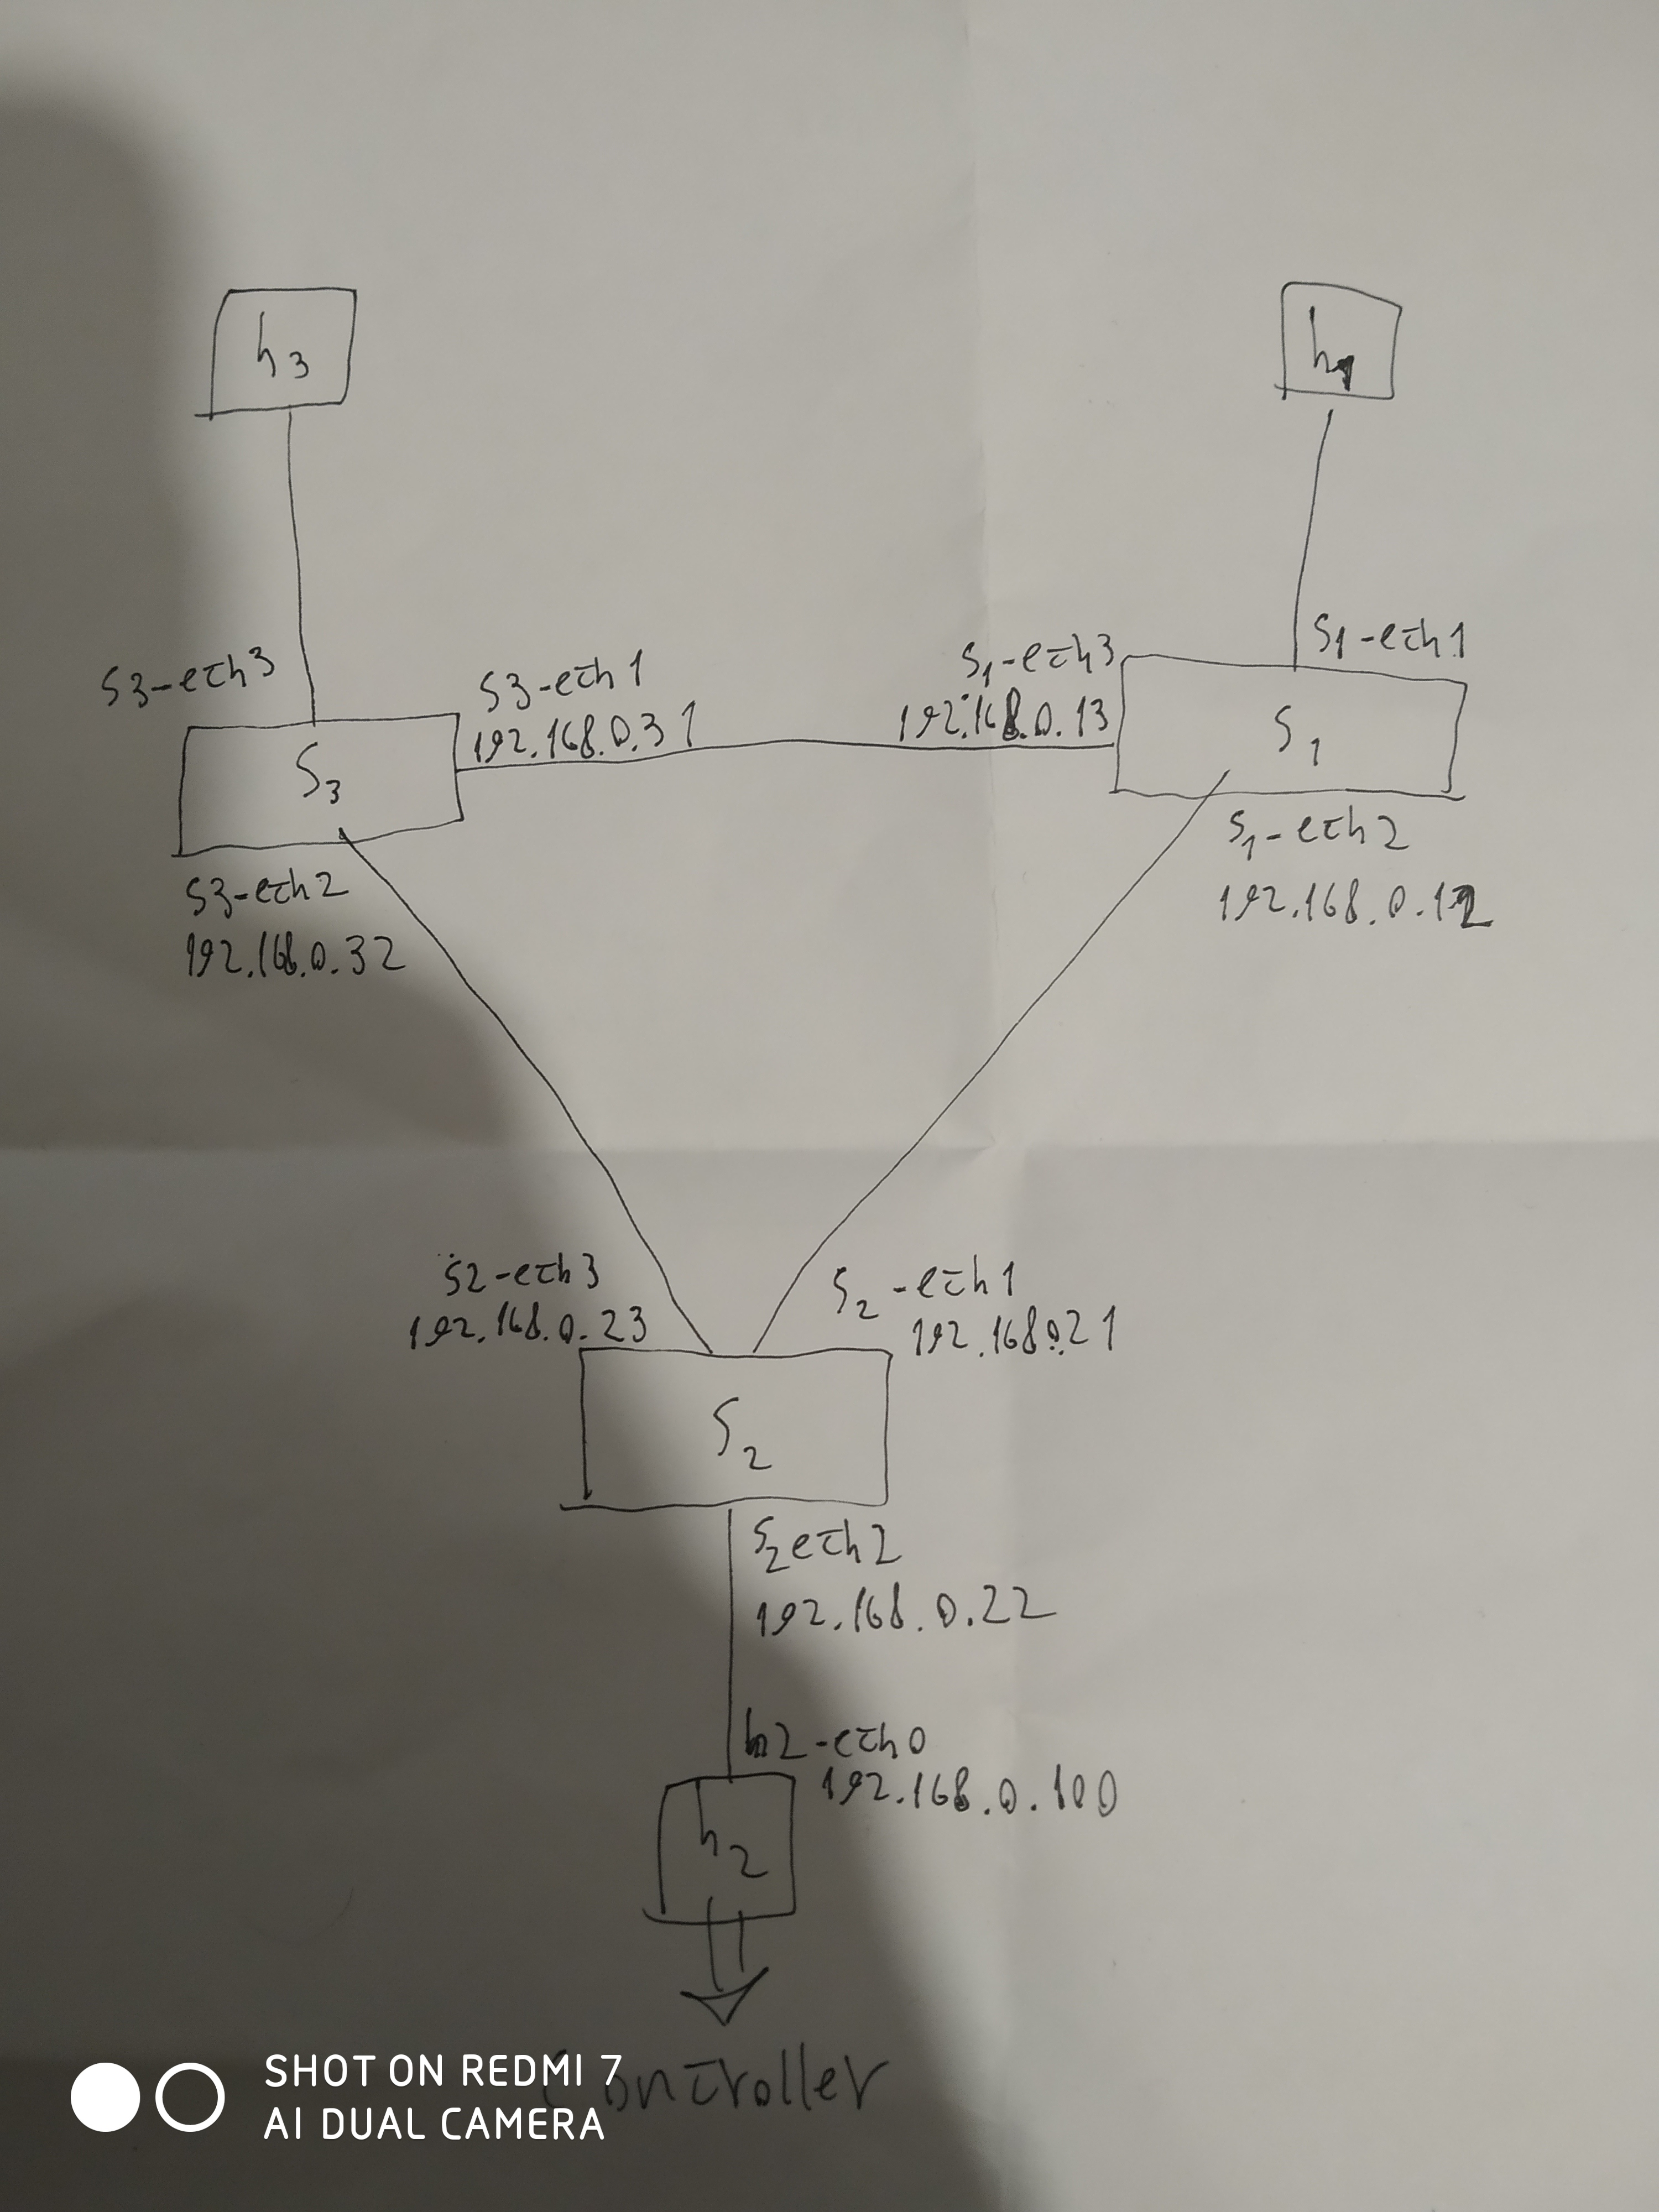 h3
h1
S1-eth1
S3-eth3
S3-eth1
192.168.0.31
S1-eth3
192.168.0.13
S3
S1
S3-eth2
192.168.0.32
S1-eth2
192.168.0.12
S2-eth3
192.168.0.23
S2-eth1
192.168.0.21
S2
S2eth2
192.168.0.22
h2-eth0
192.168.0.100
h2
Controller
SHOT ON REDMI 7
AI DUAL CAMERA